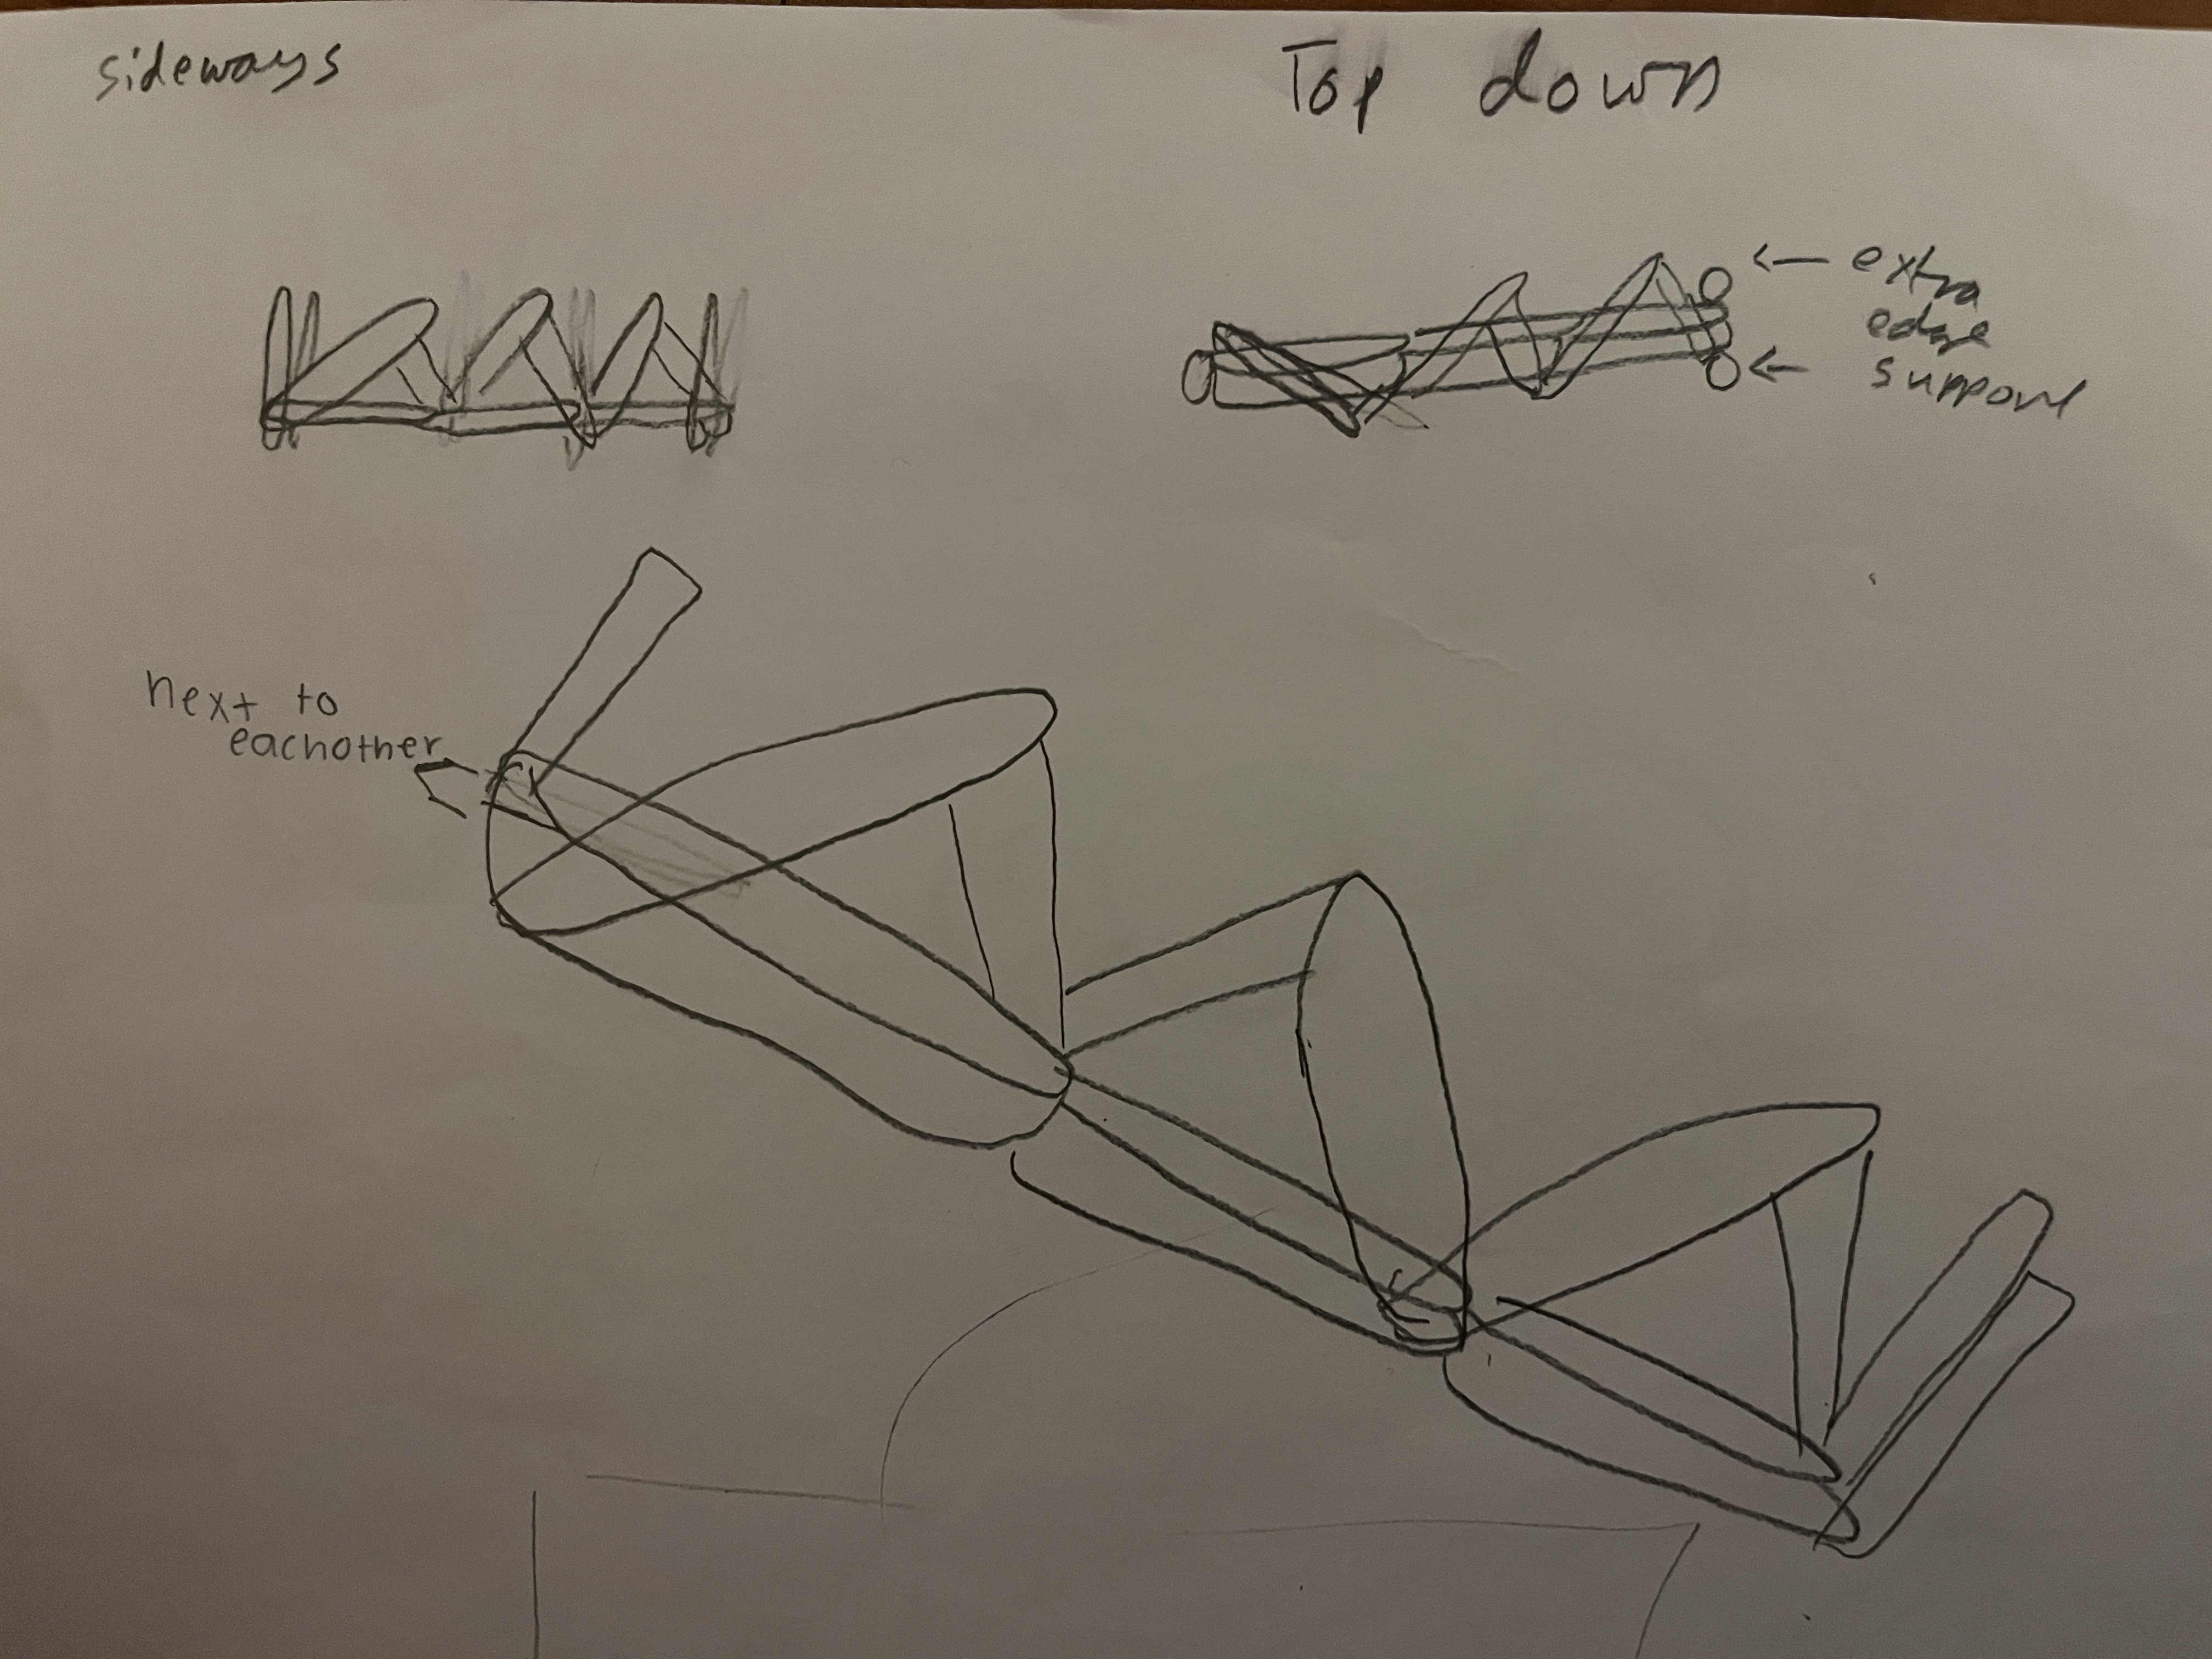 sideways
Top down
← extra
edge
← support
next to
eachother